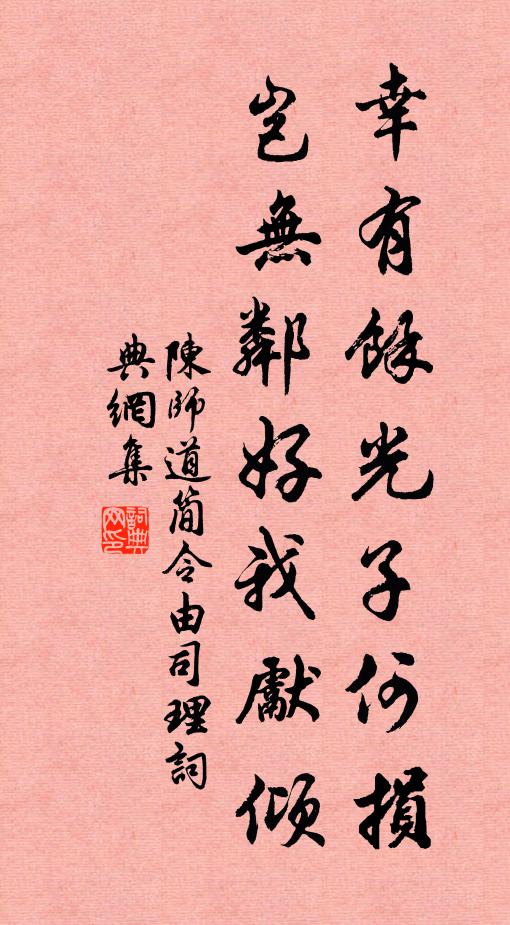 幸有餘光子何損
豈無鄰好我獻傾
陳師道簡令由司理詞
典網集
詞典網印